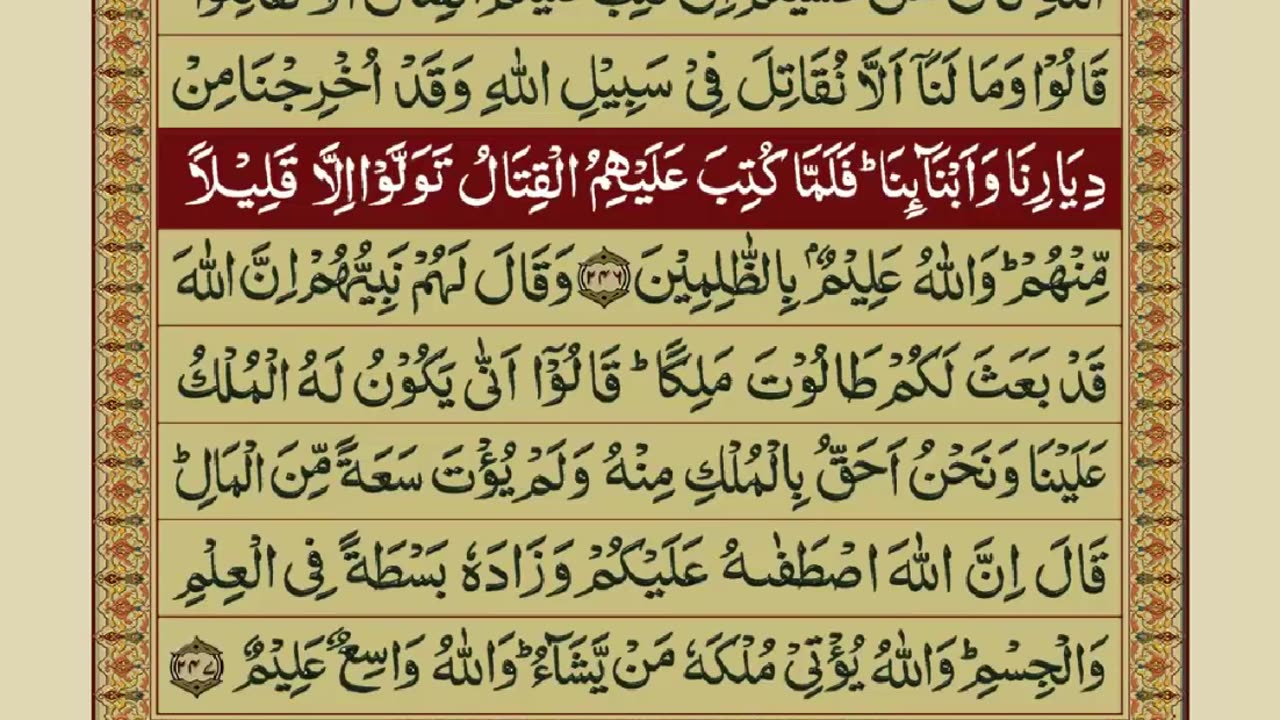 قَالُوْا وَمَا لَنَاۤ اَلَّا نُقَاتِلَ فِیْ سَبِیْلِ اللّٰهِ وَقَدْ اُخْرِجْنَا مِنْ
دِیَارِنَا وَاَبْنَآىِٕنَا ؕ فَلَمَّا كُتِبَ عَلَیْهِمُ الْقِتَالُ تَوَلَّوْا اِلَّا قَلِیْلًا
مِّنْهُمْ ؕ وَاللّٰهُ عَلِیْمٌۢ بِالظّٰلِمِیْنَ ﴿۲۴۶﴾ وَقَالَ لَهُمْ نَبِیُّهُمْ اِنَّ اللّٰهَ
قَدْ بَعَثَ لَكُمْ طَالُوْتَ مَلِكًا ؕ قَالُوْۤا اَنّٰی یَكُوْنُ لَهُ الْمُلْكُ
عَلَیْنَا وَنَحْنُ اَحَقُّ بِالْمُلْكِ مِنْهُ وَلَمْ یُؤْتَ سَعَةً مِّنَ الْمَالِ ؕ
قَالَ اِنَّ اللّٰهَ اصْطَفٰىهُ عَلَیْكُمْ وَزَادَهٗ بَسْطَةً فِی الْعِلْمِ
وَالْجِسْمِ ؕ وَاللّٰهُ یُؤْتِیْ مُلْكَهٗ مَنْ یَّشَآءُ ؕ وَاللّٰهُ وَاسِعٌ عَلِیْمٌ ﴿۲۴۷﴾